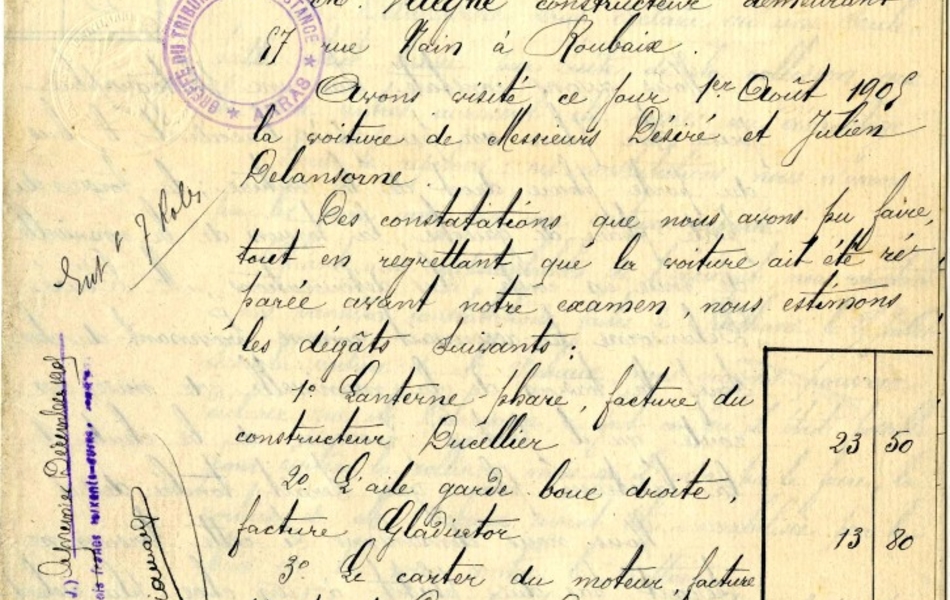 constructeur demeurant
67 rue Nain à Roubaix.
Avons visité ce jour 1er Août 1905
la voiture de Messieurs Désiré et Julien
Delansorne.
Des constatations que nous avons pu faire,
tout en regrettant que la voiture ait été ré
parée avant notre examen, nous estimons
les dégâts suivants :
1º Lanterne-phare, facture du
constructeur Ducellier 23 50
2º L'aile garde boue droite,
facture Gladiator 13 80
3º Le carter du moteur, facture
GREFFE DU TRIBUNAL
ARRAS